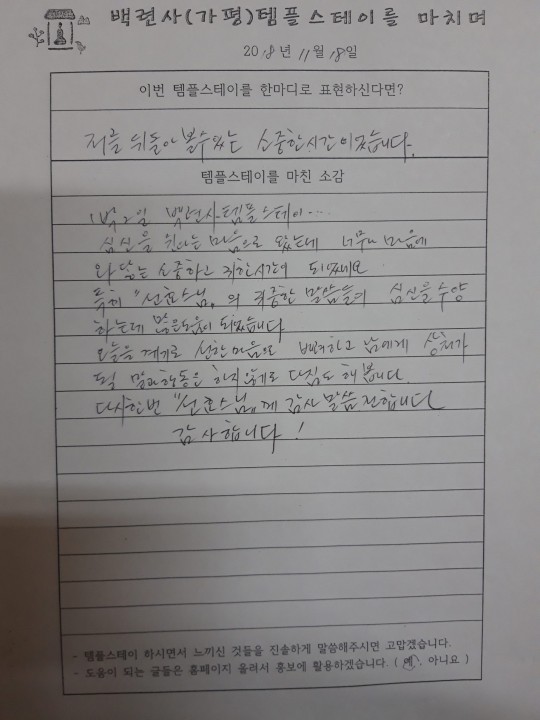 백련사(가평)템플스테이를 마치며
2018년 11월 18일
이번 템플스테이를 한마디로 표현하신다면?
저를 뒤돌아 볼수있는 소중한시간이었습니다.
템플스테이를 마친 소감
1박2일 백련사템플스테이...
심신을 쉰다는 마음으로 왔는데 너무나 마음에
와닿는 소중하고 귀한시간이 되었네요
특히 "선효스님"의 귀중한 말씀들이 심신을 수양
하는데 많은도움이 되었습니다
오늘을 계기로 선한마음으로 베려하고 남에게 상처가
될 말과행동은 하지않기로 다짐도 해봅니다.
다시한번 "선효스님"께 감사 말씀 전합니다
감사합니다!
- 템플스테이 하시면서 느끼신 것들을 진솔하게 말씀해주시면 고맙겠습니다.
- 도움이 되는 글들은 홈페이지 올려서 홍보에 활용하겠습니다. ( 예, 아니요 )